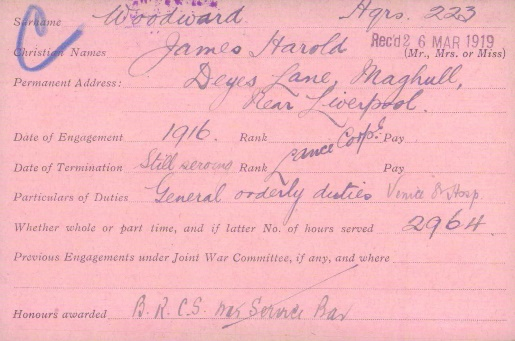 C
Surname Woodward. Hqrs. 223
Christian Names James Harold Rec'd 26 MAR 1919
(Mr., Mrs. or Miss)
Permanent Address: Deyes Lane, Maghull,
Near Liverpool.
Date of Engagement 1916. Rank Pay
Date of Termination Still serving Rank Lance Corpl Pay
Particulars of Duties General orderly duties Hosp.
Whether whole or part time, and if latter No. of hours served 2964.
Previous Engagements under Joint War Committee, if any, and where
Honours awarded B.R.C.S. War Service Bar